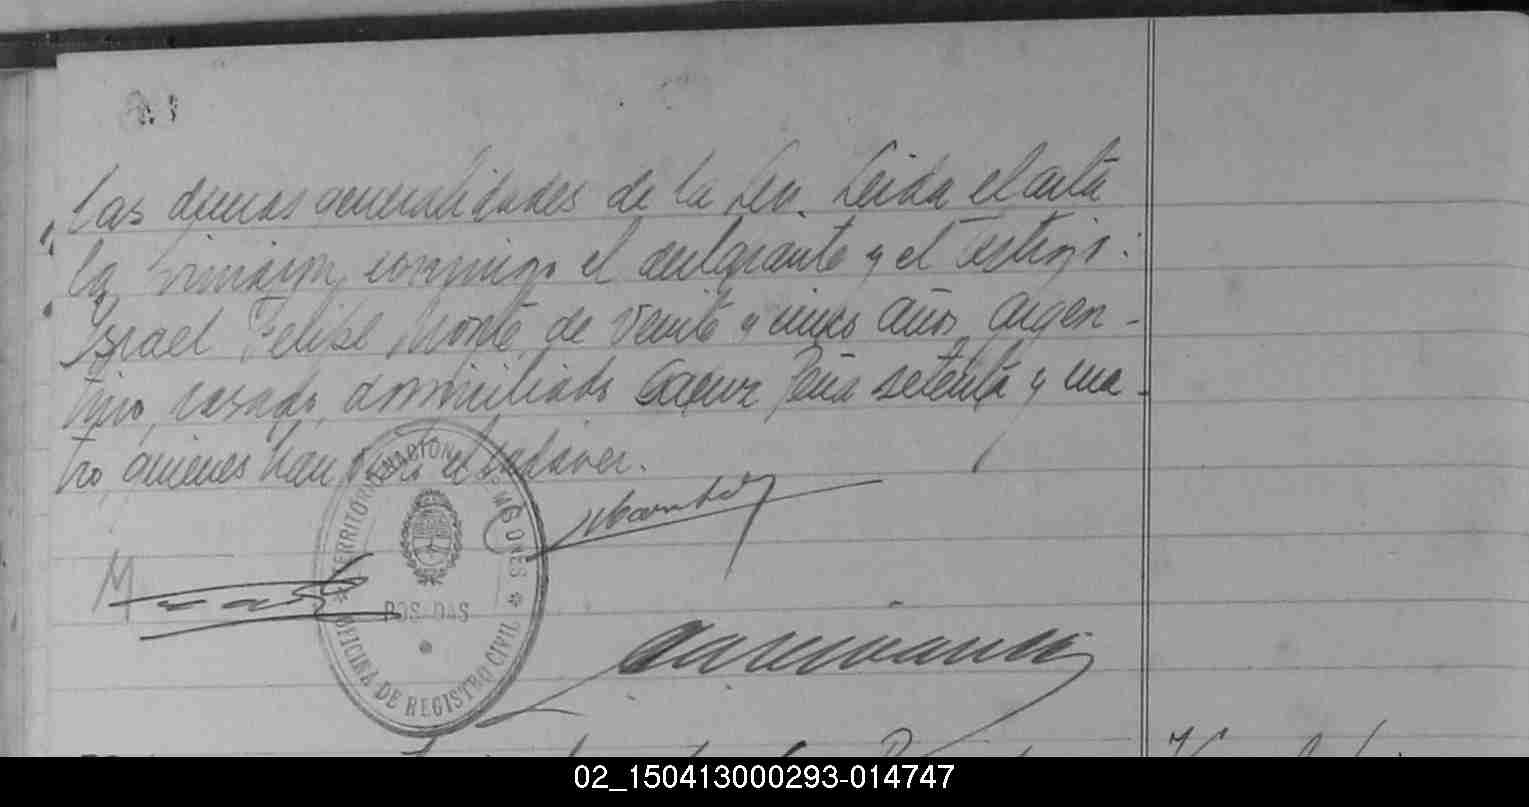 las demas generalidades de la Ley. Leida el acta
la firmaron conmigo el declarante y el testigo:
Israel Felipe Monte de veinte y cinco años, argen-
tino, casado, domiciliado Saenz Peña setenta y cua-
tro, quienes han visto el cadáver.
TERRITORIO NACIONAL DE MISIONES
POSADAS
OFICINA DE REGISTRO CIVIL
02_150413000293-014747